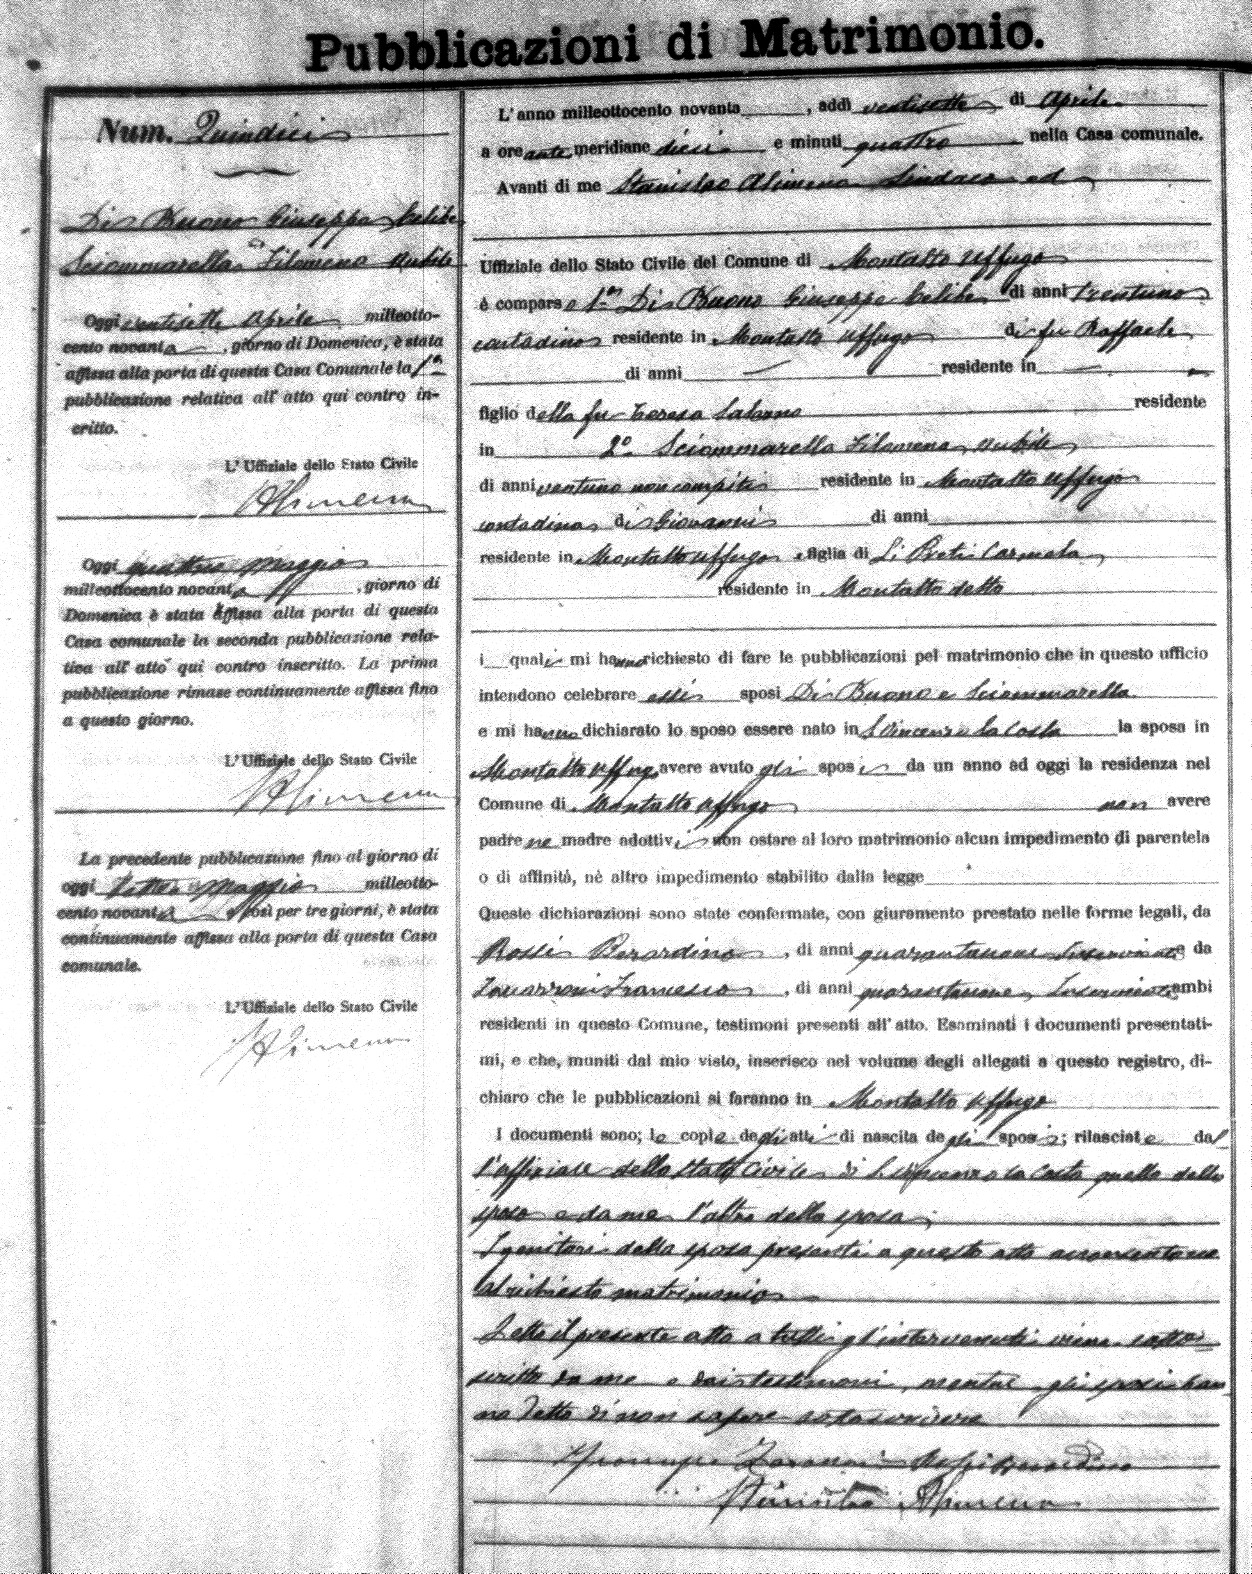 Pubblicazioni di Matrimonio.
Num. Quindici
Di Buono Giuseppe Celibe
Sciammarella Filomena Nubile
Oggi ventisette Aprile milleotto-
cento novanta, giorno di Domenica, è stata
affissa alla porta di questa Casa Comunale la 1ª
pubblicazione relativa all' atto qui contro in-
critto.
L' Uffiziale dello Stato Civile
Alimena
Oggi quattro Maggio
milleottocento novanta, giorno di
Domenica è stata affissa alla porta di questa
Casa comunale la seconda pubblicazione rela-
tiva all' atto qui contro inscritto. La prima
pubblicazione rimase continuamente affissa fino
a questo giorno.
L' Uffiziale dello Stato Civile
Alimena
La precedente pubblicazione fino al giorno di
oggi sette Maggio milleotto-
cento novanta e così per tre giorni, è stata
continuamente affissa alla porta di questa Casa
comunale.
L' Uffiziale dello Stato Civile
Alimena
L' anno milleottocento novanta, addì ventisette di Aprile
a ore antemeridiane dieci e minuti quattro nella Casa comunale.
Avanti di me Stanislao Alimena Sindaco ed
Uffiziale dello Stato Civile del Comune di Montalto Uffugo
è comparso 1º Di Buono Giuseppe Celibe di anni trentuno
contadino residente in Montalto Uffugo di fu Raffaele
di anni residente in
figlio della fu Teresa residente
in 2º Sciammarella Filomena, nubile,
di anni ventuno non compiti residente in Montalto Uffugo
contadina di Giovanni di anni
residente in Montalto Uffugo, e figlia di Li Preti Carmela
residente in Montalto detto
i quali mi hanno richiesto di fare le pubblicazioni pel matrimonio che in questo ufficio
intendono celebrare essi sposi Di Buono e Sciammarella
e mi hanno dichiarato lo sposo essere nato in S. Vincenzo la Costa la sposa in
Montalto Uffugo avere avuto gli sposi da un anno ad oggi la residenza nel
Comune di Montalto Uffugo non avere
padre ne madre adottivi non ostare al loro matrimonio alcun impedimento di parentela
o di affinità, nè altro impedimento stabilito dalla legge
Queste dichiarazioni sono state confermate, con giuramento prestato nelle forme legali, da
Rossi Berardino, di anni quarantanove Inserviente e da
Francesco, di anni quarantanove, Inserviente ambi
residenti in questo Comune, testimoni presenti all' atto. Esaminati i documenti presentati-
mi, e che, muniti dal mio visto, inserisco nel volume degli allegati a questo registro, di-
chiaro che le pubblicazioni si faranno in Montalto Uffugo
I documenti sono; le copie degli atti di nascita degli sposi; rilasciate dal
l'uffiziale dello Stato Civile di S. Vincenzo la Costa quella dello
sposo e da me l'altra della sposa;
I genitori della sposa presenti a questo atto acconsentono
al richiesto matrimonio
Letto il presente atto a tutti gl'intervenuti viene sotto=
scritto da me e dai testimoni, mentre gli sposi han
no detto di non sapere sottoscrivere
Rossi Berardino
Stanislao Alimena